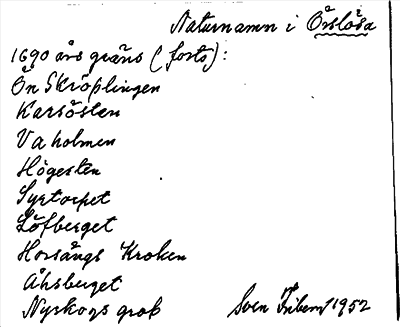 Naturnamn i Örslösa
1690 års gräns (forts):
Ön Skröplingen
Karsösten
Vaholmen
Högesten
Syrtorpet
Löfberget
Horsängs Kroken
Åhsberget
Nyskogs grop
Sven Friberg 1952